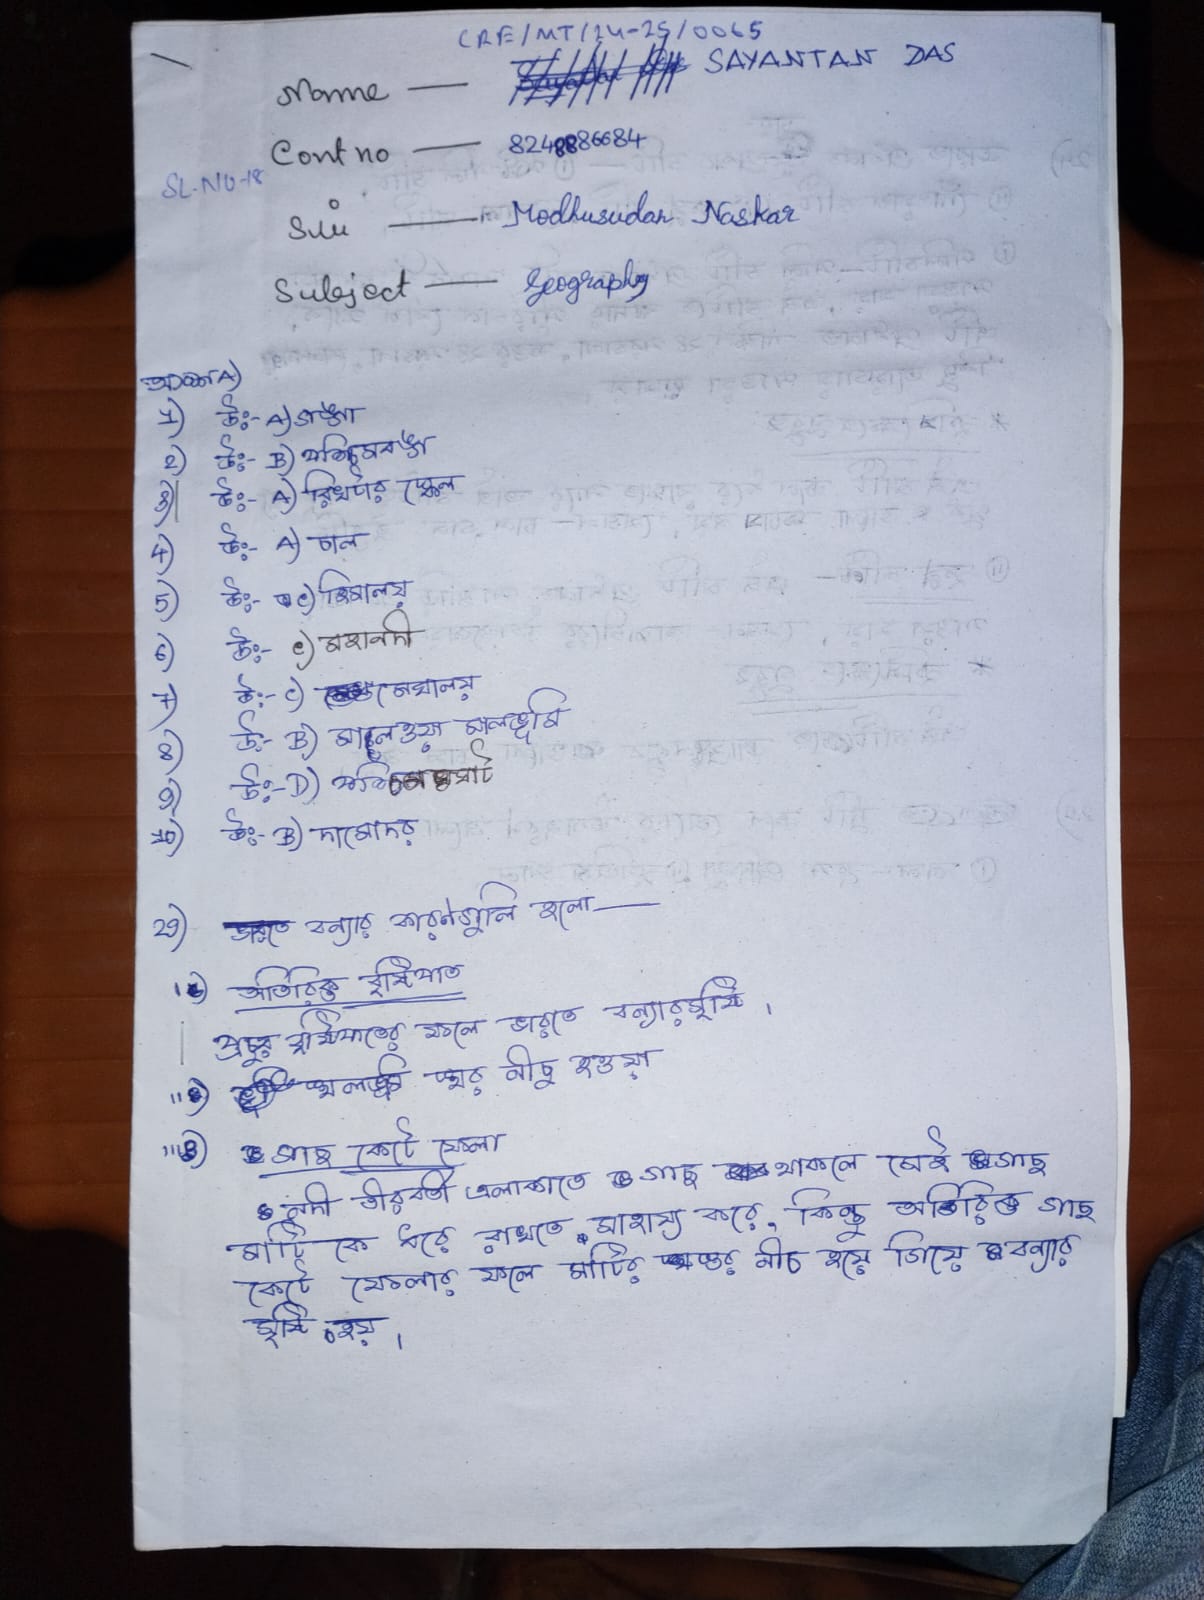 CRF/MT/24-25/0065
Name — SAYANTAN DAS
Cont no — 8248886684
SL-NO-18
Sir — Modhusudan Naskar
Subject — Geography
A)
1) উঃ- A) গঙ্গা
2) উঃ- B) পশ্চিমবঙ্গ
3) উঃ- A) রিখটার স্কেল
4) উঃ- A) চাল
5) উঃ- c) হিমালয়
6) উঃ- c) মহানদী
7) উঃ- c) মেঘালয়
8) উঃ- B) মালওয়া মালভূমি
9) উঃ- D) পশ্চিমঘাট
10) উঃ- B) দামোদর
29) বন্যার কারণগুলি হলো —
অতিরিক্ত বৃষ্টিপাত
প্রচুর বৃষ্টিপাতের ফলে ভারতে বন্যার সৃষ্টি।
স্তর নীচু হওয়া
গাছ কেটে ফেলা
নদী তীরবর্তী এলাকাতে গাছ থাকলে সেই গাছ
মাটি কে ধরে রাখতে সাহায্য করে, কিন্তু অতিরিক্ত গাছ
কেটে ফেলার ফলে মাটির স্তর নীচ হয়ে গিয়ে বন্যার
সৃষ্টি হয়।